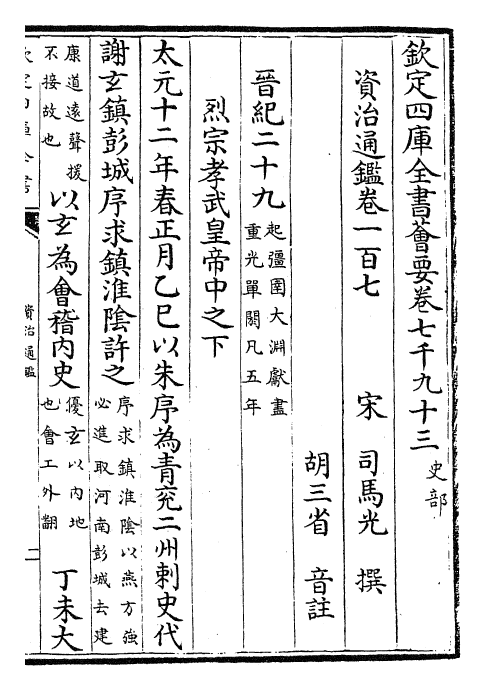 欽定四庫全書薈要卷七千九十三 史部
資治通鑑卷一百七
宋 司馬光 撰
胡三省 音註
晉紀二十九 起彊圉大淵獻盡
重光單閼凡五年
烈宗孝武皇帝中之下
太元十二年春正月乙巳以朱序為青兖二州刺史代
謝玄鎮彭城序求鎮淮陰許之 序求鎮淮陰以燕方強
必進取河南彭城去建
康道遠聲援
不接故也 以玄為會稽內史 優玄以内地
也會工外翻 丁未大
資治通鑑